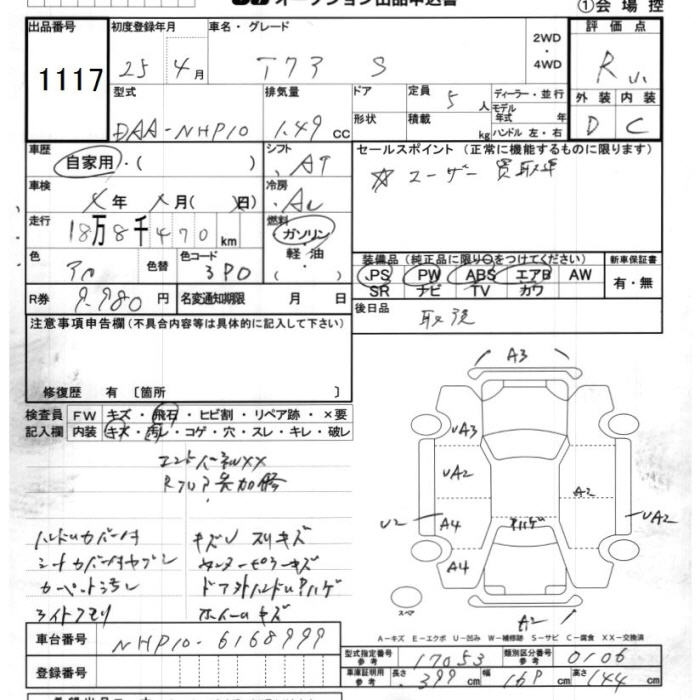 オークション出品申込書
①会場控
出品番号 初度登録年月 車名・グレード 2WD ・ 4WD 評価点
1117 25年4月 S R
型式 排気量 ドア 定員 5人 ディーラー・並行 外装 内装
モデル年式 年
DAA-NHP10 1.49cc 形状 積載 kg ハンドル 左・右 D C
車歴 シフト セールスポイント (正常に機能するものに限ります)
自家用・( ) AT ☆ユーザー買取車
車検 冷房
年 月 日) AC
走行 燃料
18万8千470km ガソリン
色 色替 色コード 軽油
3P0
装備品 (純正品に限り○をつけてください) 新車保証書
PS PW ABS エアB AW 有・無
SR ナビ TV カワ
R券 9.980円 名変通知期限 月 日 後日品 取説
注意事項申告欄(不具合内容等は具体的に記入して下さい)
修復歴 有 〔箇所 〕
検査員 FW キズ・飛石・ヒビ割・リペア跡・×要
記入欄 内装 キズ・汚レ・コゲ・穴・スレ・キレ・破レ
ハンドルカバー付 キズU スリキズ
シートカバー付ヤブレ センターピラーキズ
カーペット汚レ ドア外ハンドルPハゲ
ライトクモリ ホイールキズ
A3
UA3
UA2
A2
U2 A4 UA2
A4
スペア
A2
A-キズ E-エクボ U-凹み W-補修跡 S-サビ C-腐食 XX-交換済
車台番号 NHP10-6168999
登録番号
型式指定番号 参考 17053 類別区分番号 参考 0106
車庫証明用 参考 長さ 399cm 幅 169cm 高さ 144cm